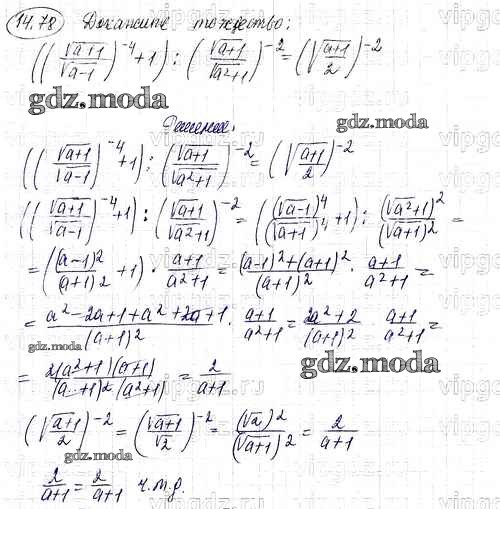 14.78 Докажите тождество:
((√(a+1)/√(a-1))^-4 + 1) : (√(a+1)/√(a²+1))^-2 = (√((a+1)/2))^-2
gdz.moda
Решение.
gdz.moda
((√(a+1)/√(a-1))^-4 + 1) : (√(a+1)/√(a²+1))^-2 = (√((a+1)/2))^-2
((√(a+1)/√(a-1))^-4 + 1) : (√(a+1)/√(a²+1))^-2 = ((√(a-1))^4/(√(a+1))^4 + 1) : (√(a²+1))^2/(√(a+1))^2 =
= ((a-1)²/(a+1)² + 1) · (a+1)/(a²+1) = ((a-1)²+(a+1)²)/(a+1)² · (a+1)/(a²+1) =
= (a²-2a+1+a²+2a+1)/(a+1)² · (a+1)/(a²+1) = (2a²+2)/(a+1)² · (a+1)/(a²+1) =
gdz.moda
= 2(a²+1)(a+1)/((a+1)²(a²+1)) = 2/(a+1)
(√((a+1)/2))^-2 = (√(a+1)/√2)^-2 = (√2)²/(√(a+1))² = 2/(a+1)
gdz.moda
2/(a+1) = 2/(a+1) ч.т.д.
vipgdz.ru